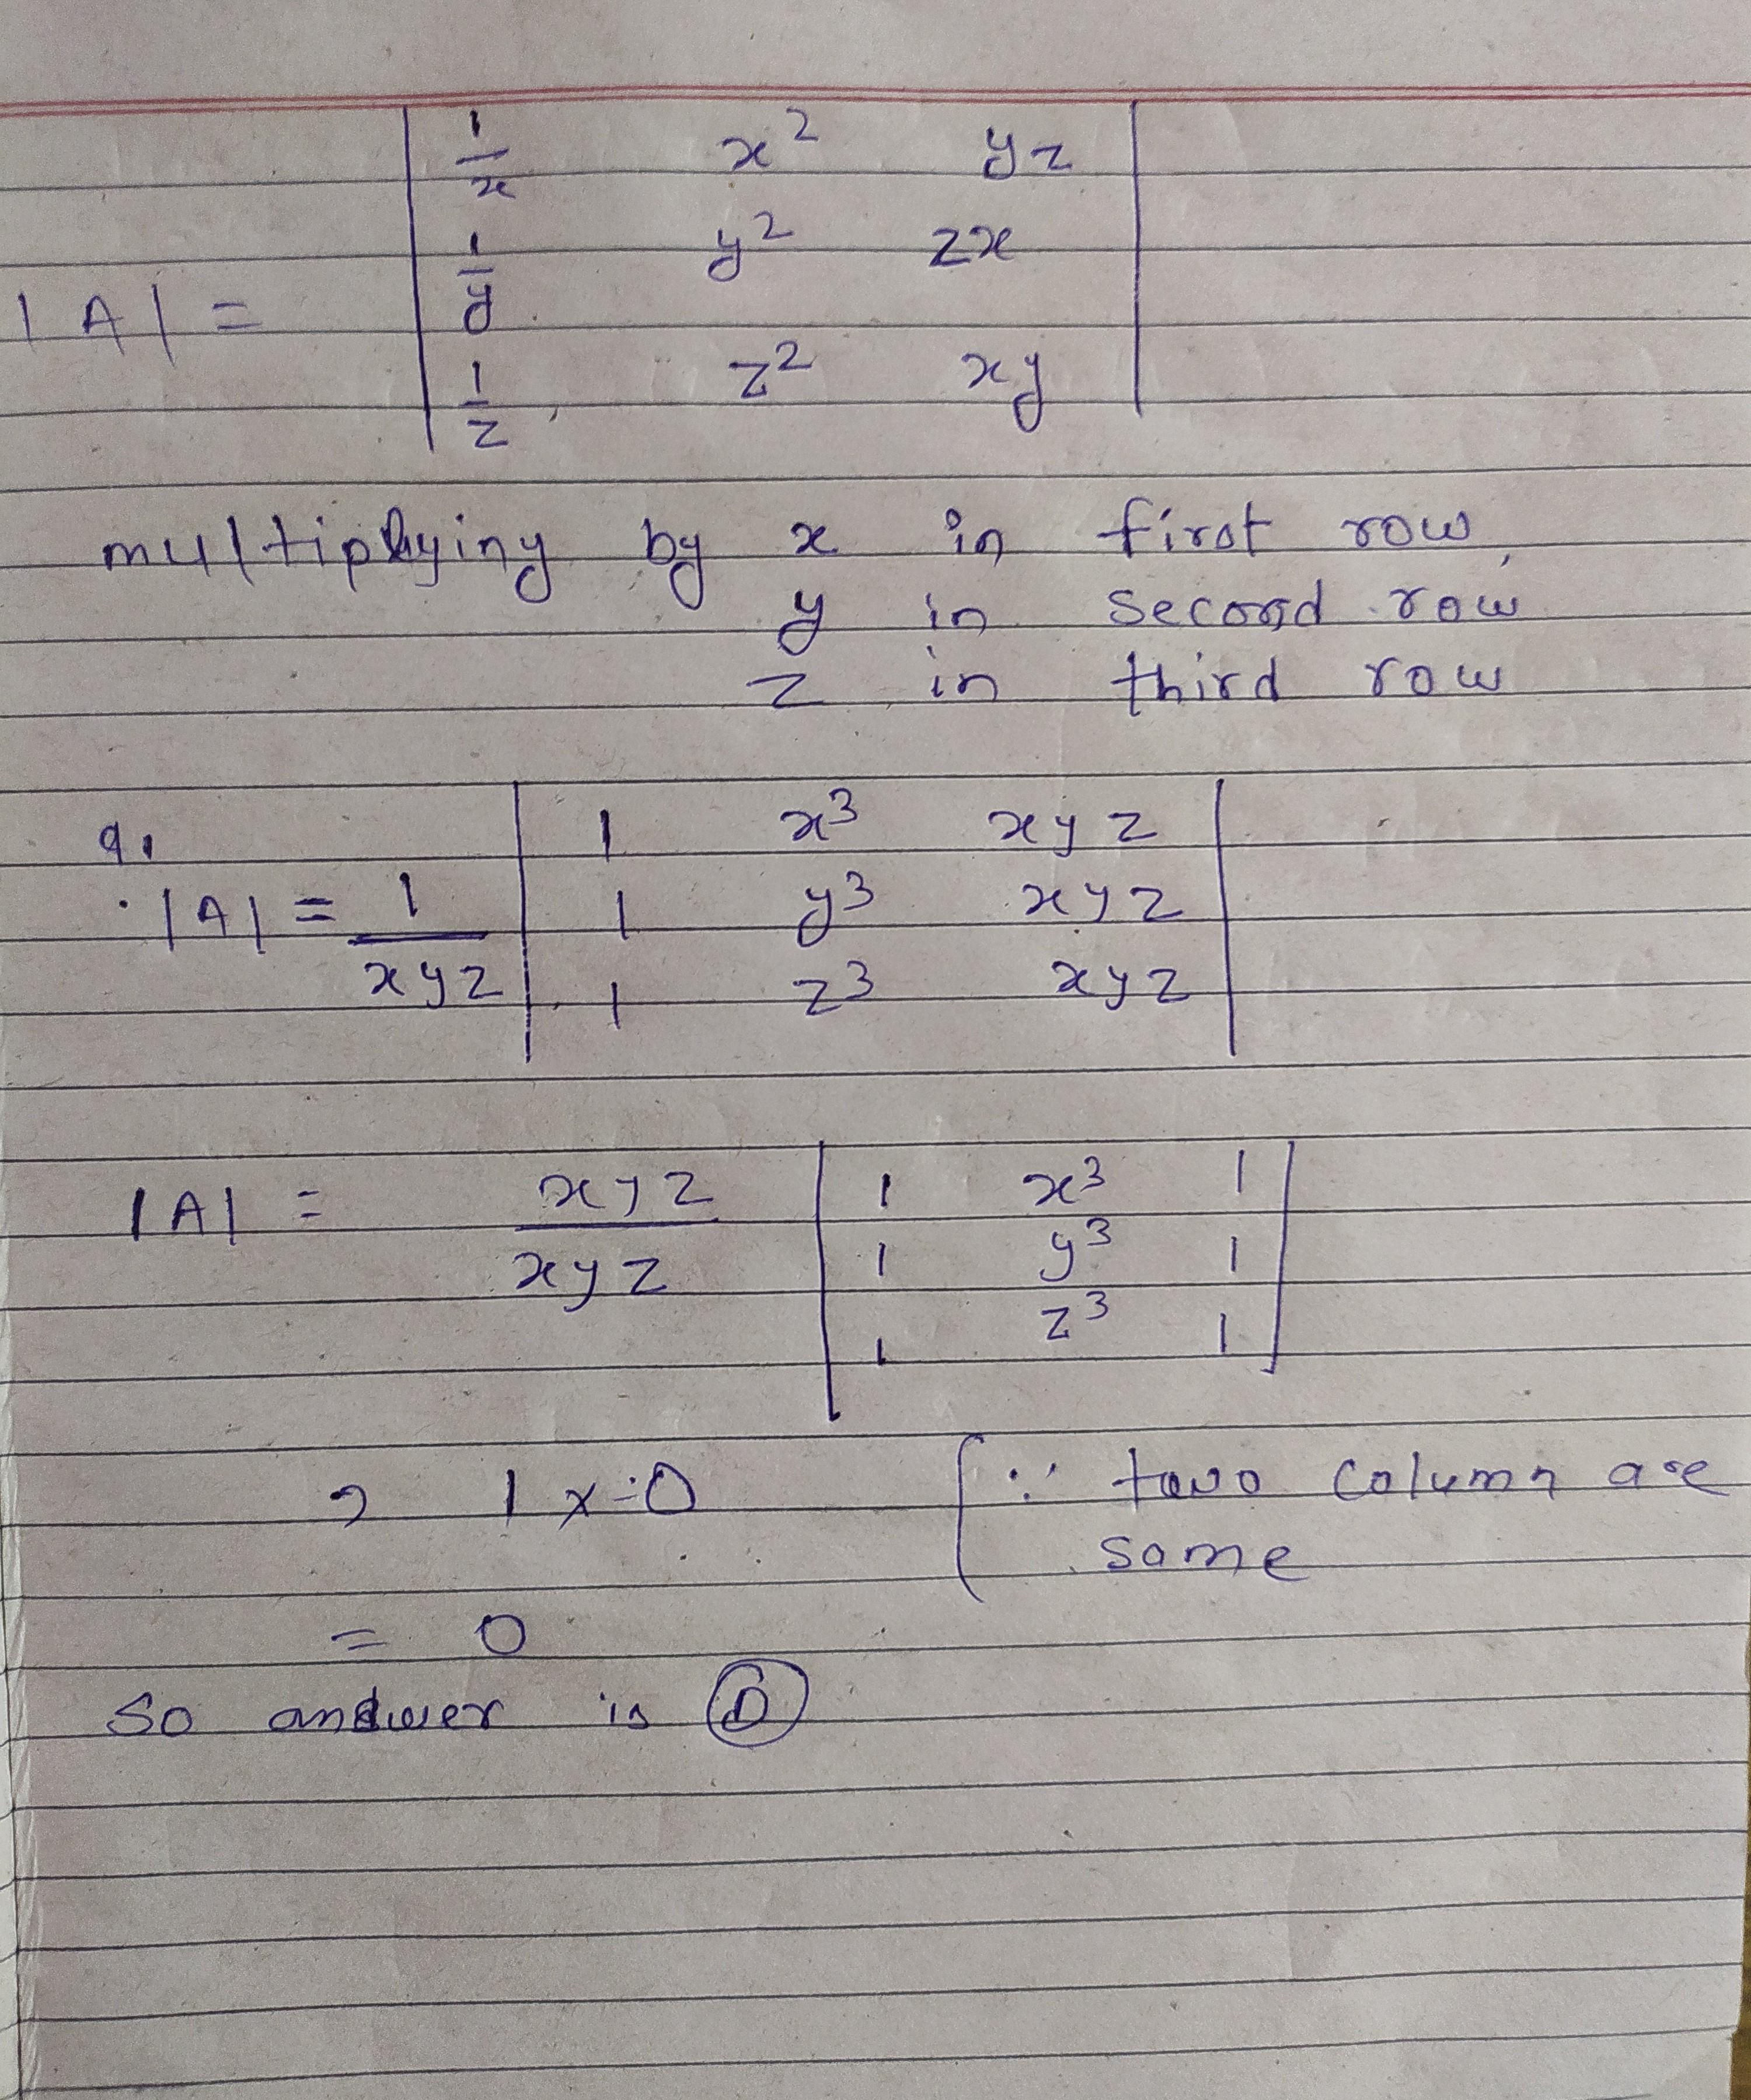 |A| = | 1/x x² yz |
| 1/y y² zx |
| 1/z z² xy |
multiplying by x in first row,
y in second row
z in third row
|A| = 1/xyz | 1 x³ xyz |
| 1 y³ xyz |
| 1 z³ xyz |
|A| = xyz/xyz | 1 x³ 1 |
| 1 y³ 1 |
| 1 z³ 1 |
1 x 0 [∵ two column are
same
= 0
so andwer is (D)